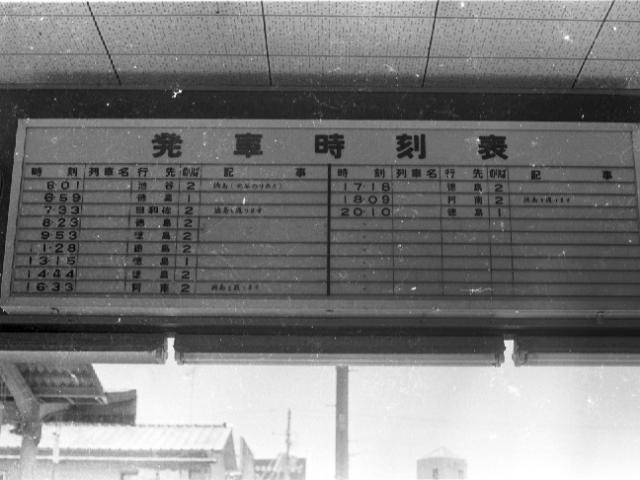 発車時刻表
時刻 列車名 行先 記事
6・01 池谷 2
6・59 徳島 1
7・33 日和佐 2 徳島を通ります
8・23 徳島 2
9・53 徳島 2
11・28 徳島 2
13・15 徳島 1
14・44 徳島 2
16・33 阿南 2 徳島を通ります
時刻 列車名 行先 記事
17・18 徳島 2
18・09 阿南 2 徳島を通ります
20・10 徳島 1